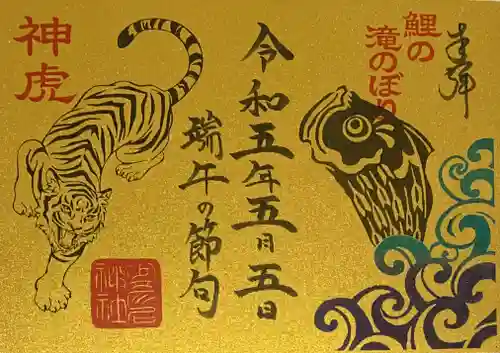 奉拝
鯉の
滝のぼり
令和五年五月五日
端午の節句
神虎